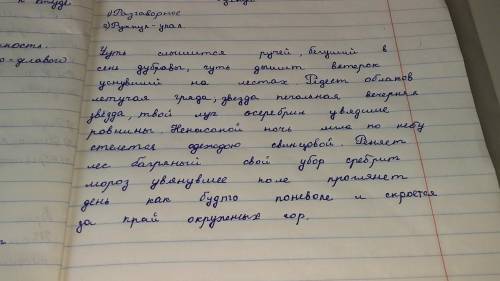 1) Разговорное
2) Рухнул - упал
ность.
о-делового
Чуть слышится ручей, бегущий в
сене дубравы, чуть дышит ветерок
уснувший на лестах Редеет облаков
летучая гряда, звезда печальная вечерняя
звезда, твой луч осеребрил увядшие
ровнины. Ненасаной ночь мгла по небу
стелется одеждою свинцовой. Роняет
лес багряный свой убор сребрит
мороз увянувшее поле проглянет
день как будто поневоле и скроется
за край окружных гор.